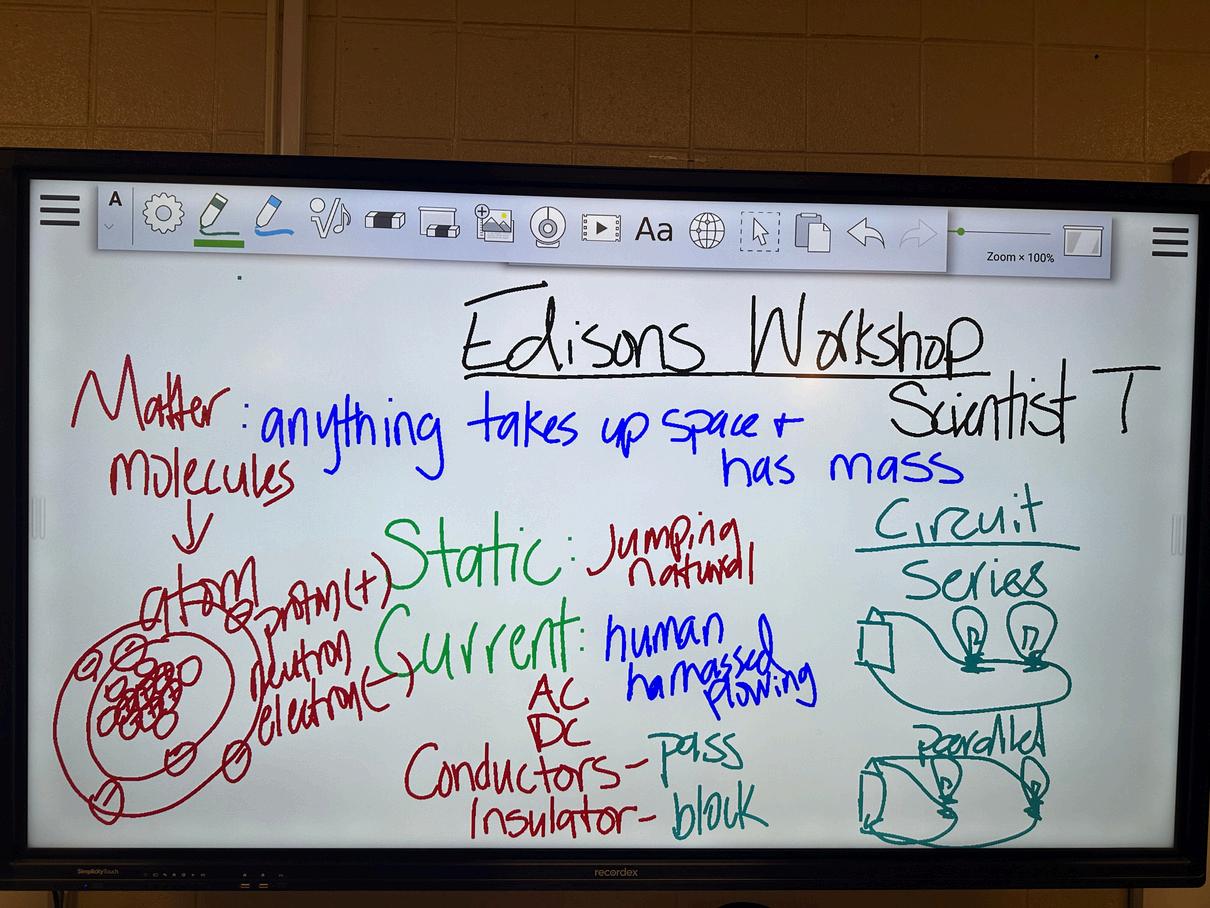 A
Aa
Zoom × 100%
Edisons Workshop
Scientist T
Matter : anything takes up space +
has mass
molecules
atom
proton (+)
neutron
electron (-)
Static : Jumping
natural
Current : human
harnassed
flowing
AC
DC
Conductors - pass
Insulator - block
Circuit
Series
parallel
SimplicityTouch
recordex